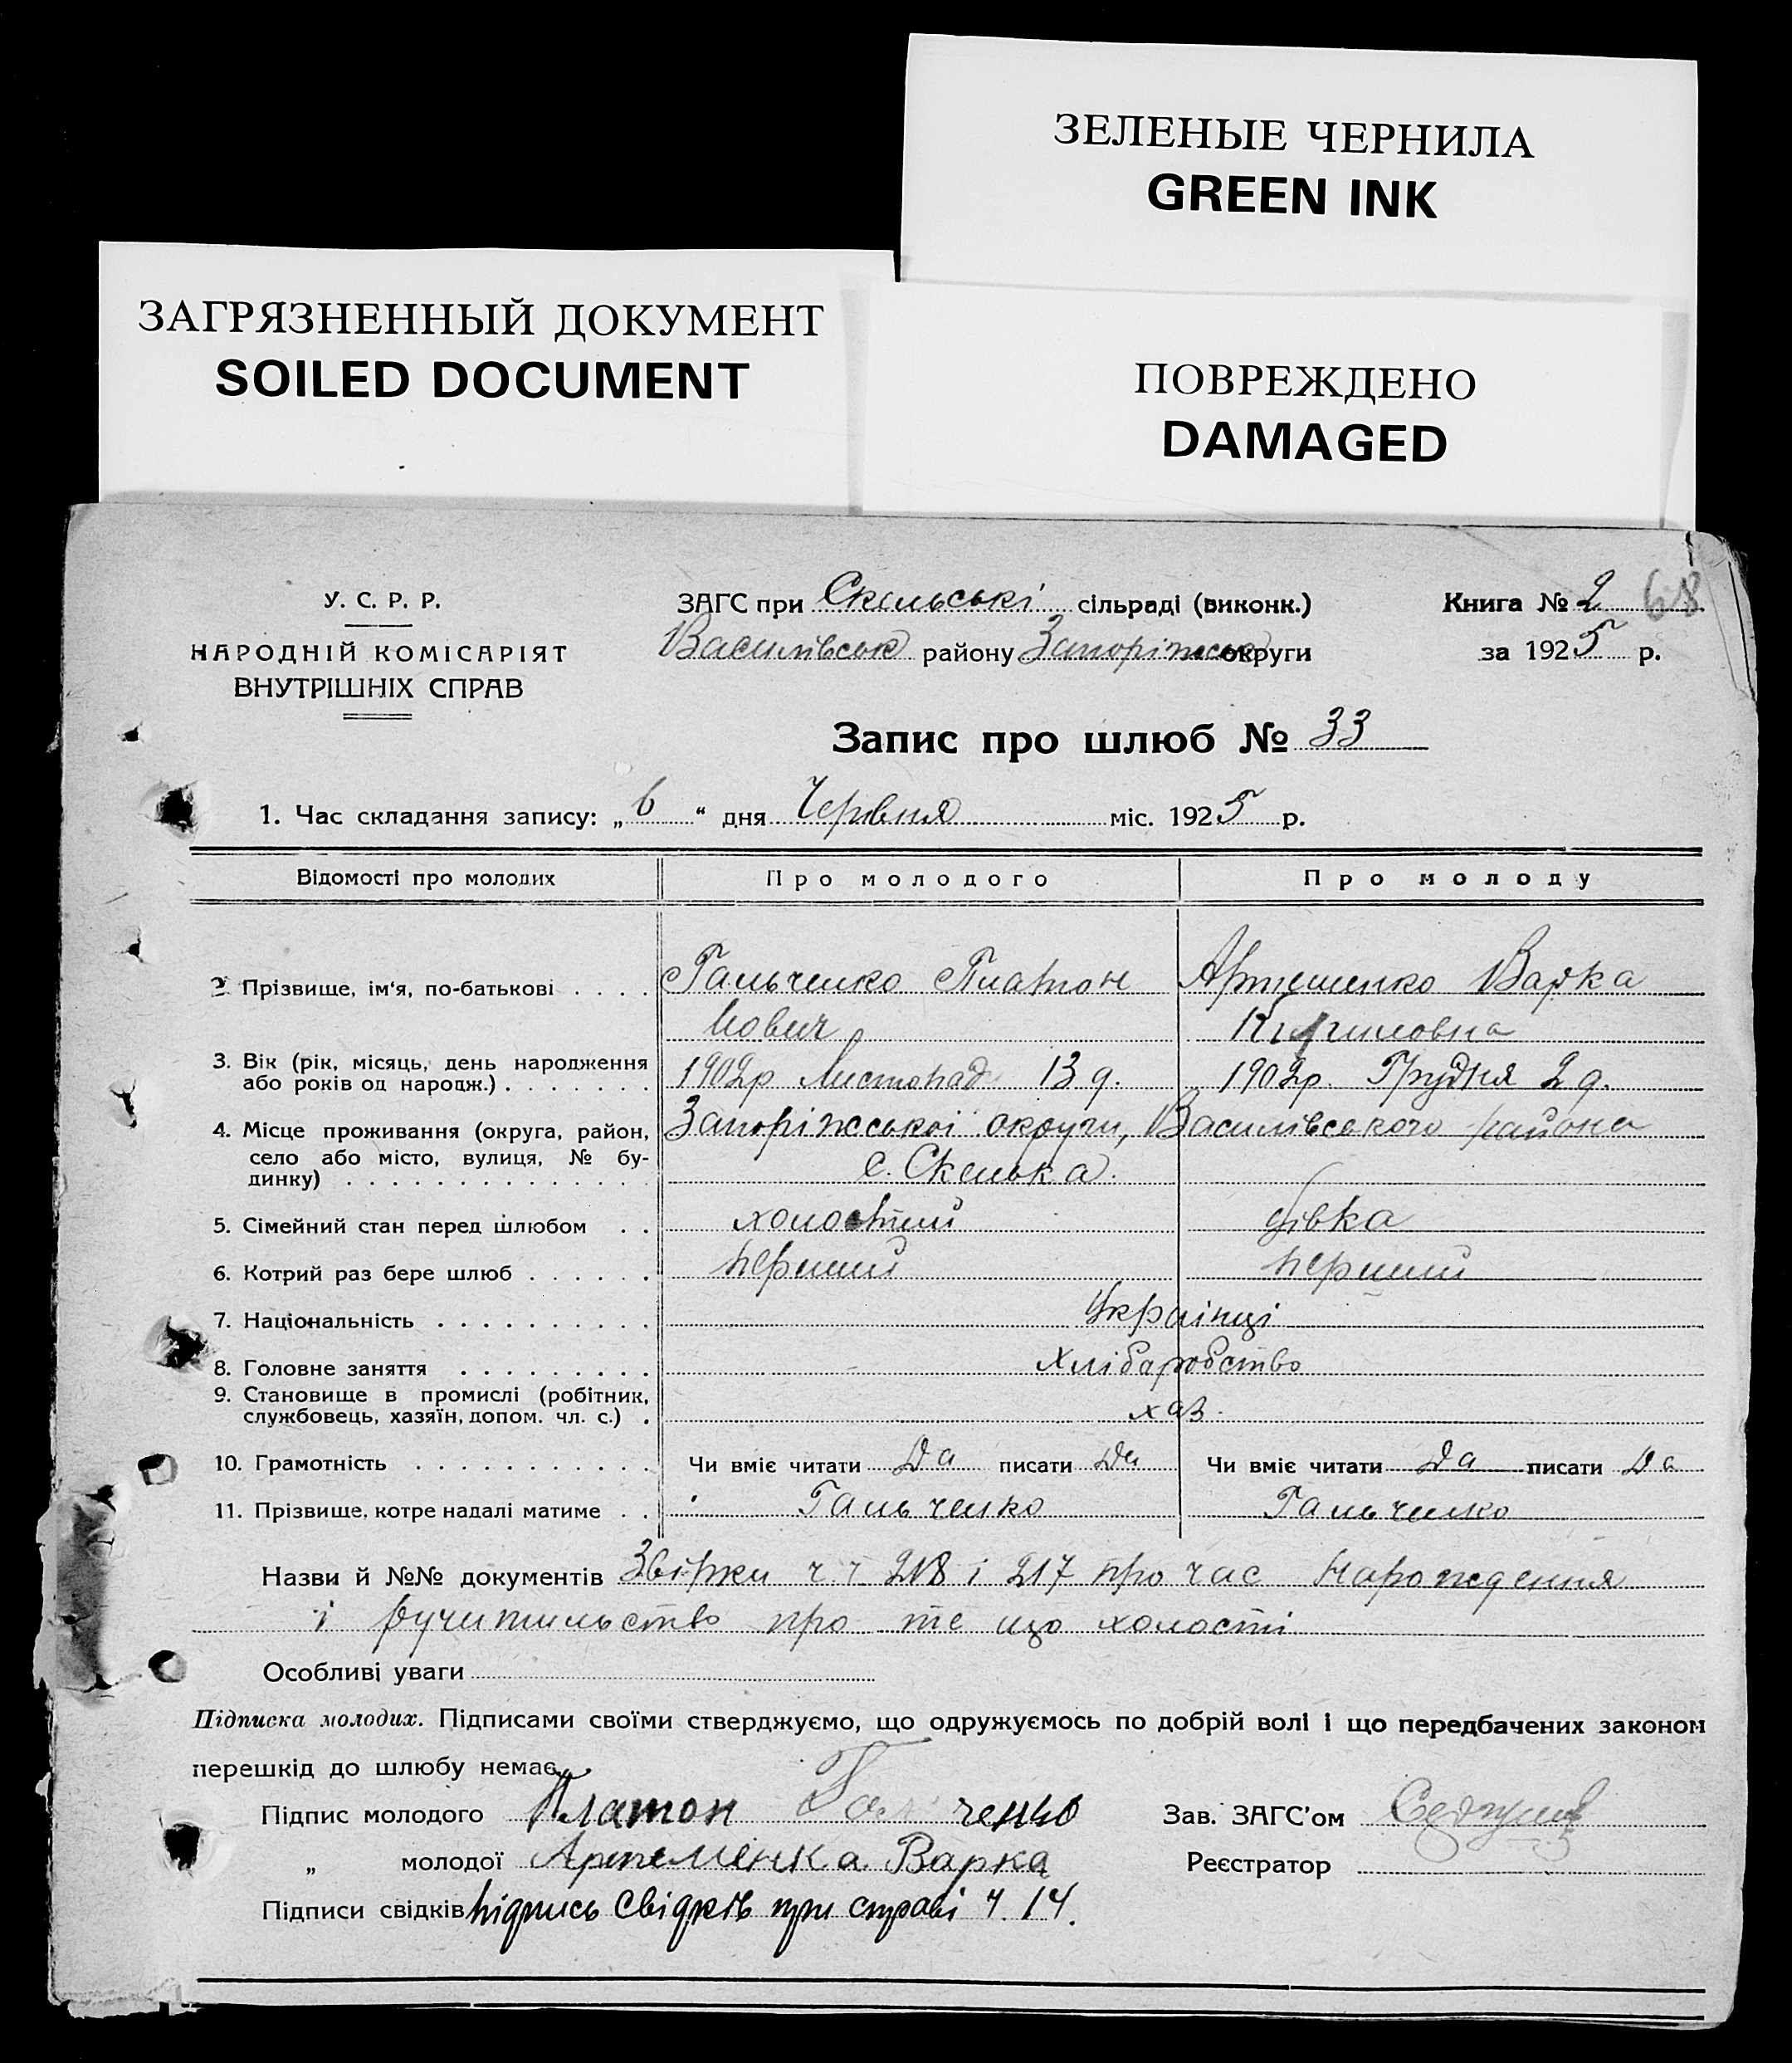 ЗЕЛЕНЫЕ ЧЕРНИЛА
GREEN INK
ЗАГРЯЗНЕННЫЙ ДОКУМЕНТ
SOILED DOCUMENT
ПОВРЕЖДЕНО
DAMAGED
У. С. Р. Р.
НАРОДНІЙ КОМІСАРІЯТ
ВНУТРІШНІХ СПРАВ
ЗАГС при Скельські сільраді (виконк.)
Василівськ району Запоріжськ округи
Книга № 2 68
за 1925 р.
Запис про шлюб № 33
1. Час складання запису: „6“ дня Червня міс. 1925 р.
Відомості про молодих Про молодого Про молоду
2 Прізвище, ім'я, по-батькові . . . . Гальченко Платон Артеменко Варка
Іович
3. Вік (рік, місяць, день народження
або років од нарозж.) . . . . . . . 1902р Листопад 13 д. 1902р. Грудня 2 д.
4. Місце проживання (округа, район,
село або місто, вулиця, № бу-
динку) . . . . . . . . . . . . . . Запоріжської округи, Василівського района
с. Скелька.
5. Сімейний стан перед шлюбом . . холостий дівка
6. Котрий раз бере шлюб . . . . . . перший перший
7. Національність . . . . . . . . . . Українці
8. Головне заняття . . . . . . . . . Хлібаробство
9. Становище в промислі (робітник,
службовець, хазяїн, допом. чл. с.) . хаз.
10. Грамотність . . . . . . . . . . . Чи вміє читати Да писати Да Чи вміє читати Да писати Да
11. Прізвище, котре надалі матиме . . Гальченко Гальченко
Назви й №№ документів Звірки ч. ч 218 і 217 про час нарождения
і ручительство про те що холості
Особливі уваги
Підписка молодих. Підписами своїми стверджуємо, що одружуємось по добрій волі і що передбачених законом
перешкід до шлюбу немає.
Підпис молодого Платон Гальченко Зав. ЗАГС'ом
„ молодої Артеменка Варка Реєстратор
Підписи свідків підпись свідків при справі ч. 14.